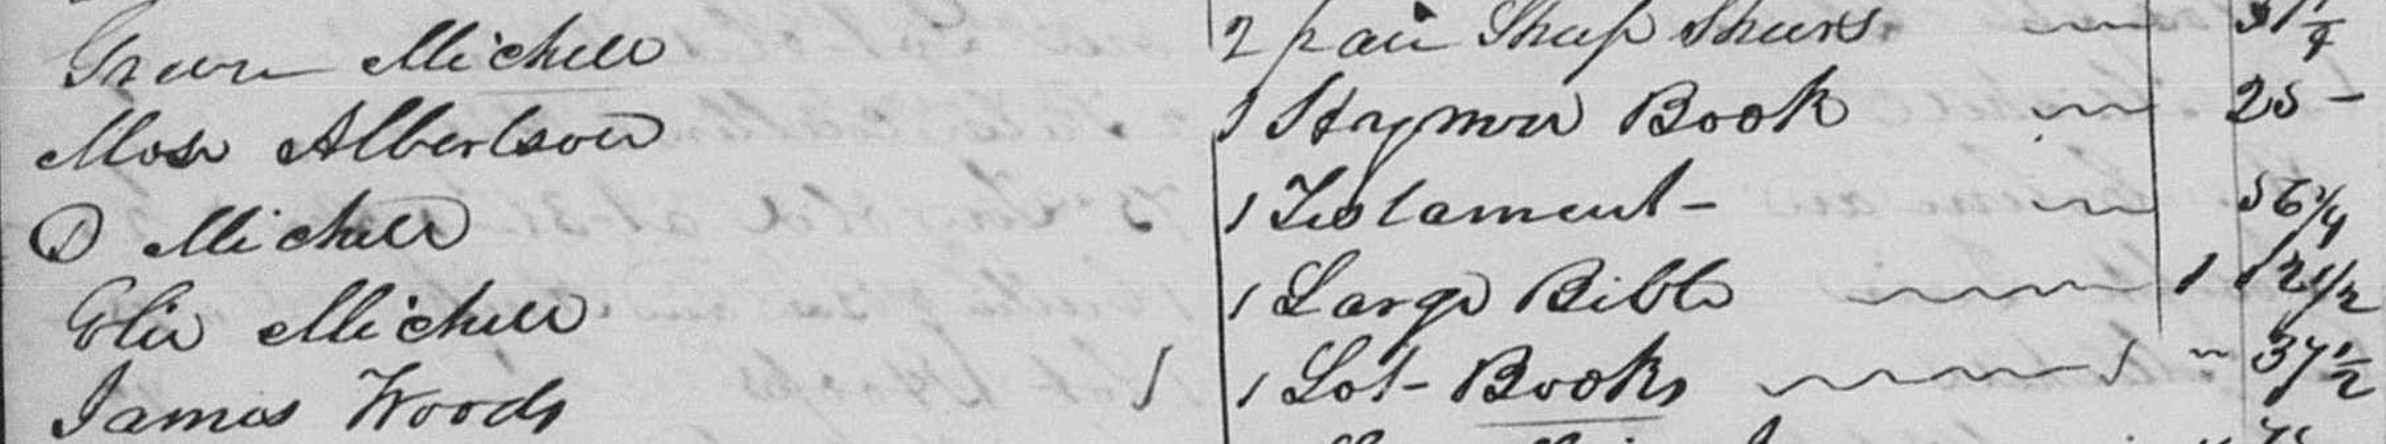 Green Michell 2 pair Sheep Shears 31 1/4
Mose Albertson 1 Hymn Book 25 -
D Michell 1 Testament - 56 1/4
Elie Michell 1 Large Bible 1 12 1/2
James Woods 1 Lot Books 37 1/2